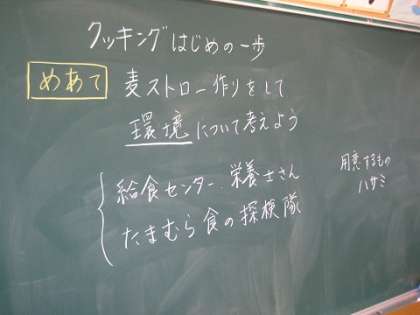 クッキングはじめの一歩
めあて 麦ストロー作りをして
環境について考えよう
給食センター、栄養士さん
たまむら食の探検隊
用意するもの
ハサミ